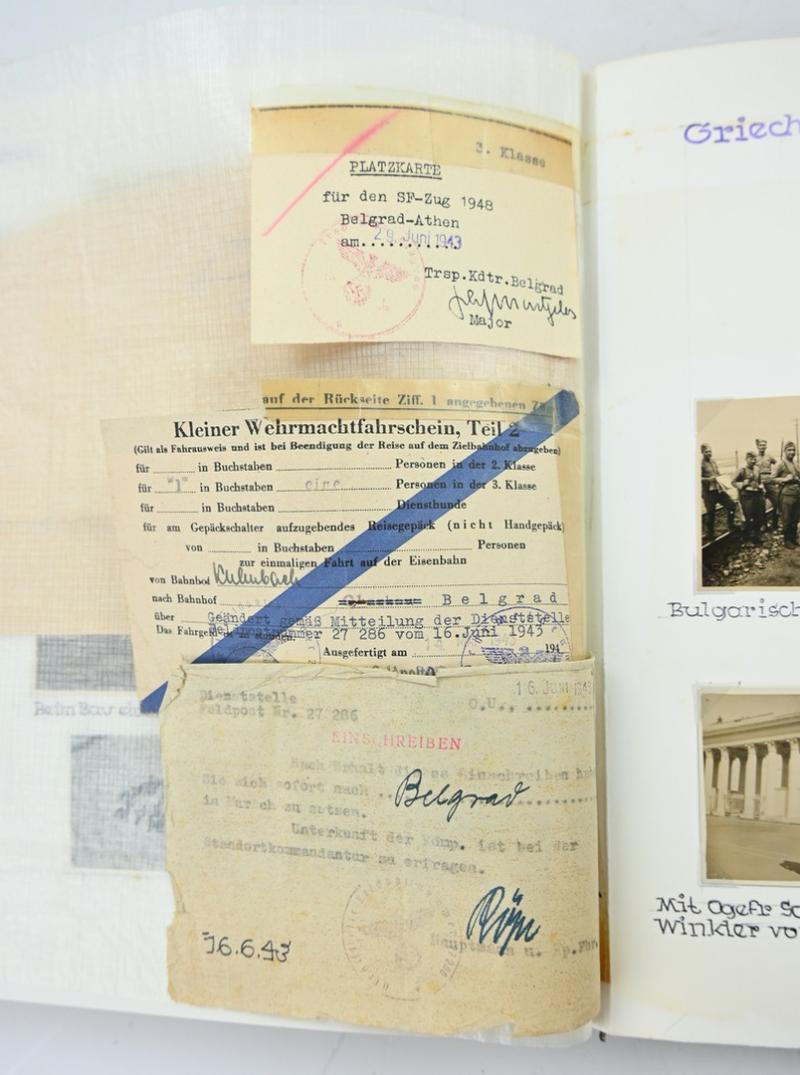 3. Klasse
PLATZKARTE
für den SF-Zug 1948
Belgrad-Athen
am............
29. Juni 1943
Trsp.Kdtr.Belgrad
Major
auf der Rückseite Ziff. 1 angegebenen
Kleiner Wehrmachtfahrschein, Teil 2
(Gilt als Fahrausweis und ist bei Beendigung der Reise auf dem Zielbahnhof abzugeben)
für ........ in Buchstaben ........ Personen in der 2. Klasse
für "1" in Buchstaben eine Personen in der 3. Klasse
für ........ in Buchstaben ........ Diensthunde
für am Gepäckschalter aufzugebendes Reisegepäck (nicht Handgepäck)
von ........ in Buchstaben ........ Personen
zur einmaligen Fahrt auf der Eisenbahn
von Bahnhof Kulmbach
nach Bahnhof Belgrad
über Geändert gemäß Mitteilung der Dienststelle
Das
27 286 vom 16.Juni 1943
Ausgefertigt am 194
Dienststelle
Feldpost Nr. 27 286
16. Juni 1943
O.U., ........
EINSCHREIBEN
Nach Erhalt dieses Einschreiben
Sie sich sofort nach .. Belgrad ........
in Marsch zu setzen.
Unterkunft der Komp. ist bei der
Standortkommandantur zu erfragen.
Hauptmann u.
16.6.43
Griech
Bulgarisch
Mit Ogefr
Winkler vo
Beim